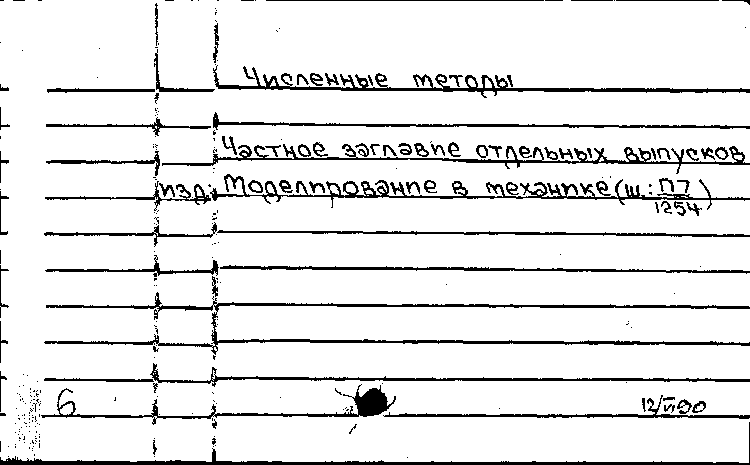 Численные методы
Частное заглавие отдельных выпусков
изд.: Моделирование в механике (ш.: П7
1254)
6
12/VI 90